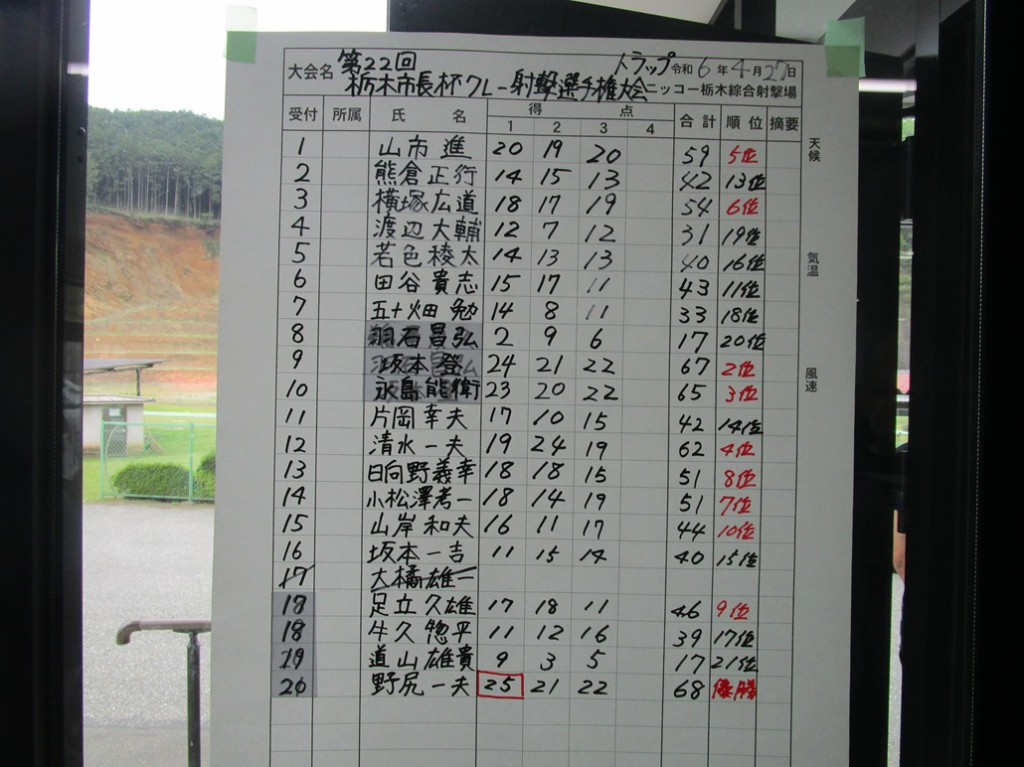 大会名 第22回 トラップ 令和 6 年 4 月 27 日
栃木市長杯クレー射撃選手権大会 ニッコー栃木綜合射撃場
受付 所属 氏 名 得 点 合計 順位 摘要
1 2 3 4
天候
1 山市 進 20 19 20 59 5位
2 熊倉正行 14 15 13 42 13位
3 横塚広道 18 17 19 54 6位
4 渡辺大輔 12 7 12 31 19位
5 若色稜太 14 13 13 40 16位
気温
6 田谷貴志 15 17 11 43 11位
7 五十畑 勉 14 8 11 33 18位
8 羽石昌弘 2 9 6 17 20位
9 坂本 登 24 21 22 67 2位
風速
10 永島能衛 23 20 22 65 3位
11 片岡幸夫 17 10 15 42 14位
12 清水一夫 19 24 19 62 4位
13 日向野義幸 18 18 15 51 8位
14 小松澤考一 18 14 19 51 7位
15 山岸和夫 16 11 17 44 10位
16 坂本一吉 11 15 14 40 15位
17 大橋雄一
18 足立久雄 17 18 11 46 9位
18 牛久惣平 11 12 16 39 17位
19 道山雄貴 9 3 5 17 21位
20 野尻一夫 25 21 22 68 優勝